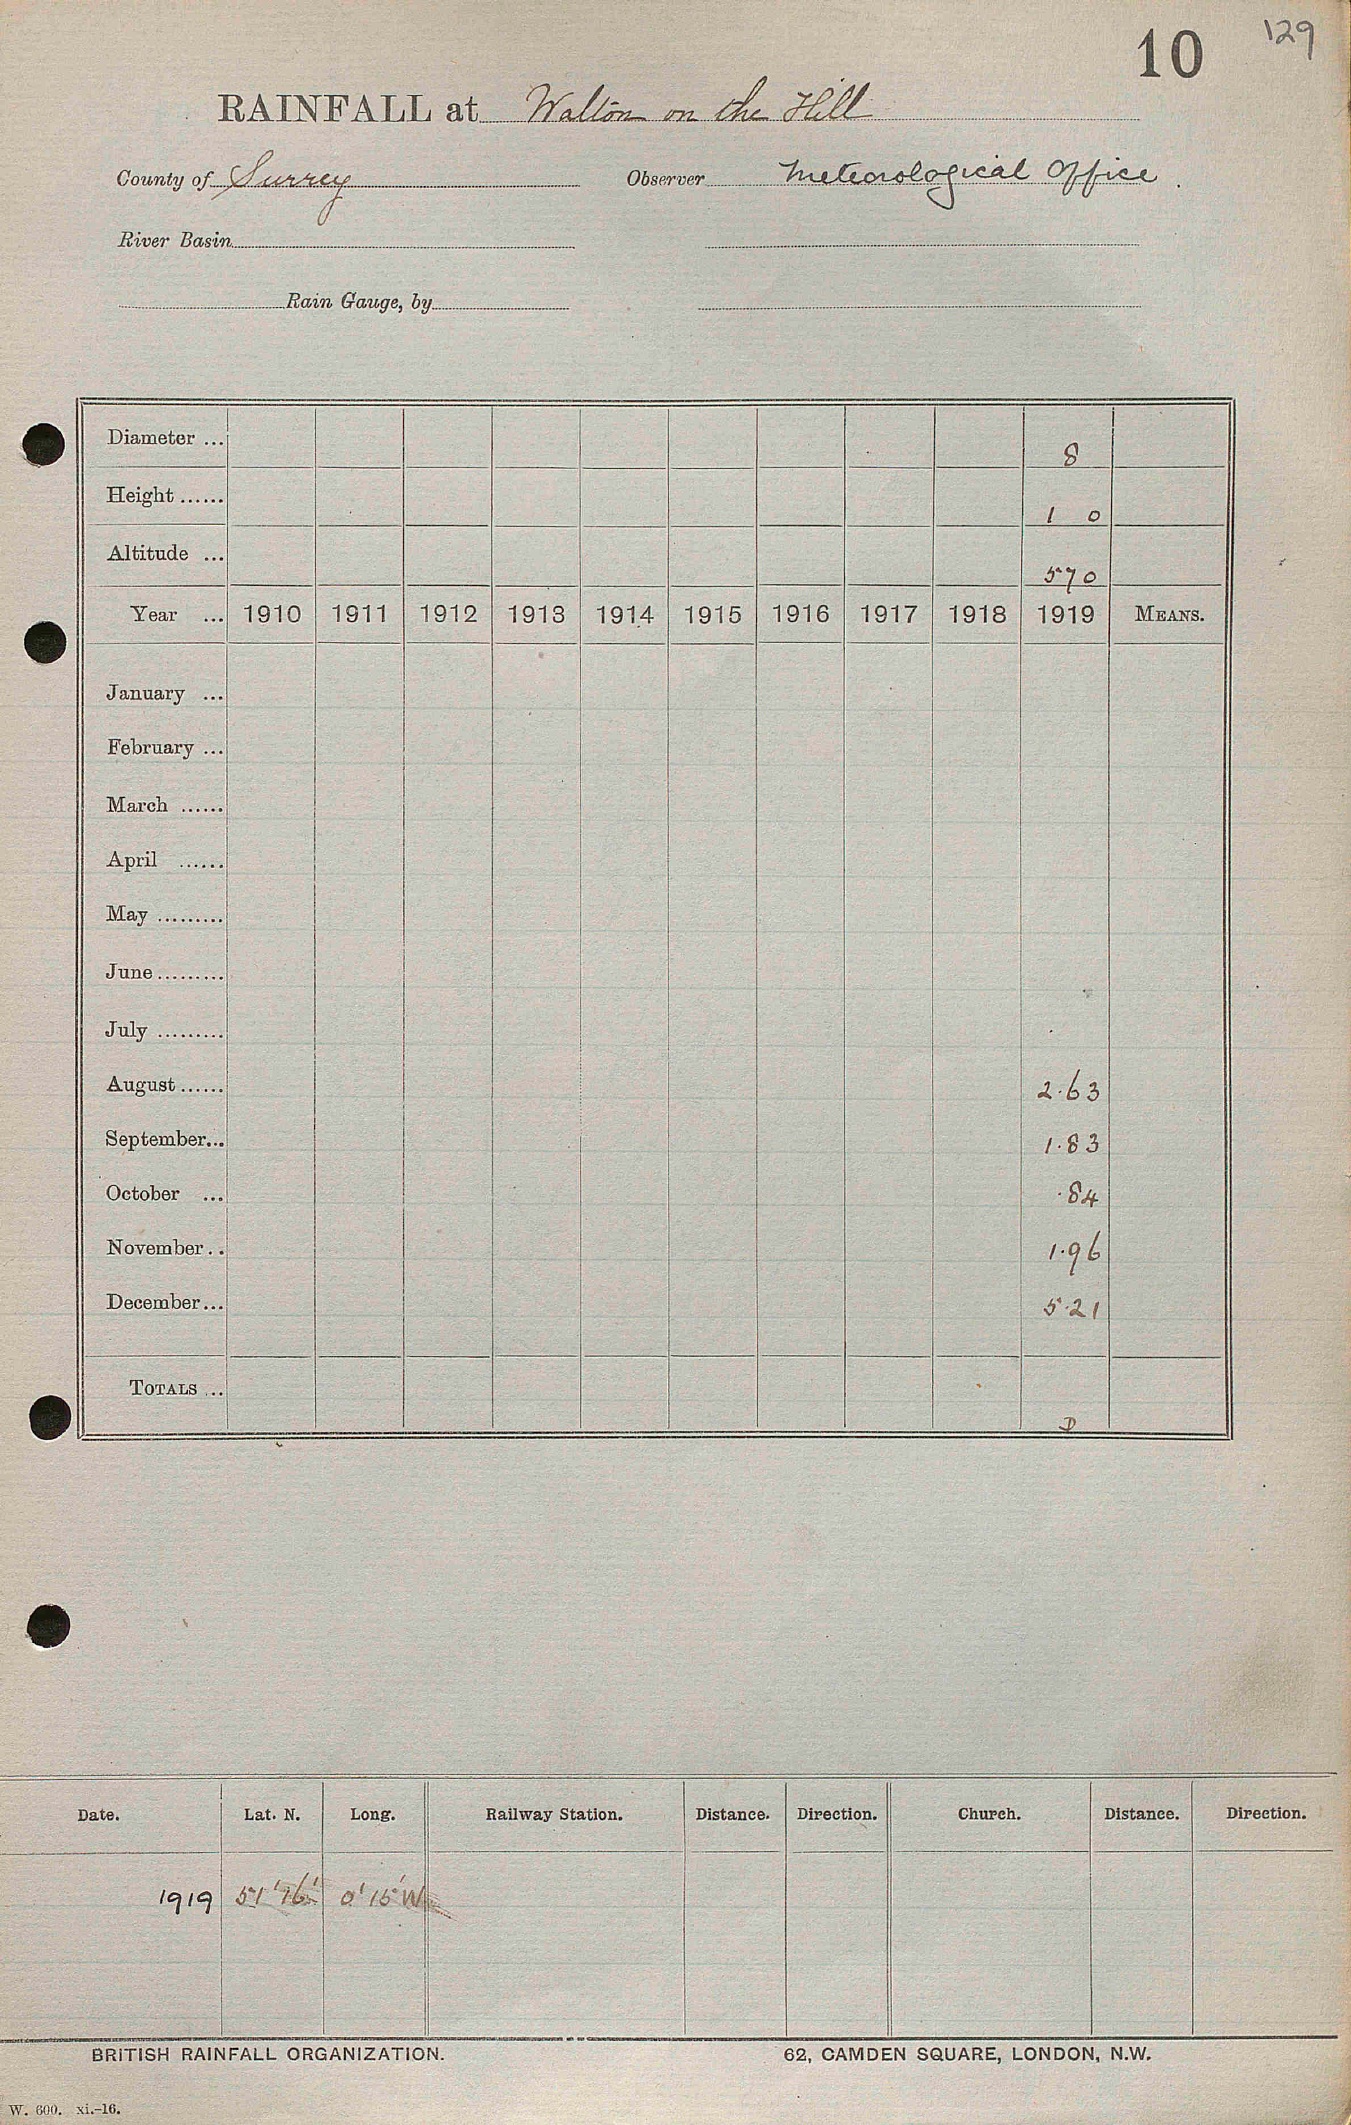 10 129
RAINFALL at Walton on the Hill
County of Surrey Observer Meteorological Office
River Basin
Rain Gauge, by
Diameter ... 8
Height ...... 1 0
Altitude ... 570
Year ... 1910 1911 1912 1913 1914 1915 1916 1917 1918 1919 MEANS.
January ...
February ...
March ......
April ......
May .........
June .........
July .........
August ...... 2.63
September... 1.83
October ... .84
November .. 1.96
December... 5.21
TOTALS ...
D
Date. Lat. N. Long. Railway Station. Distance. Direction. Church. Distance. Direction.
1919 51°16' 0°15'W
BRITISH RAINFALL ORGANIZATION. 62, CAMDEN SQUARE, LONDON, N.W.
W. 600. xi.-16.